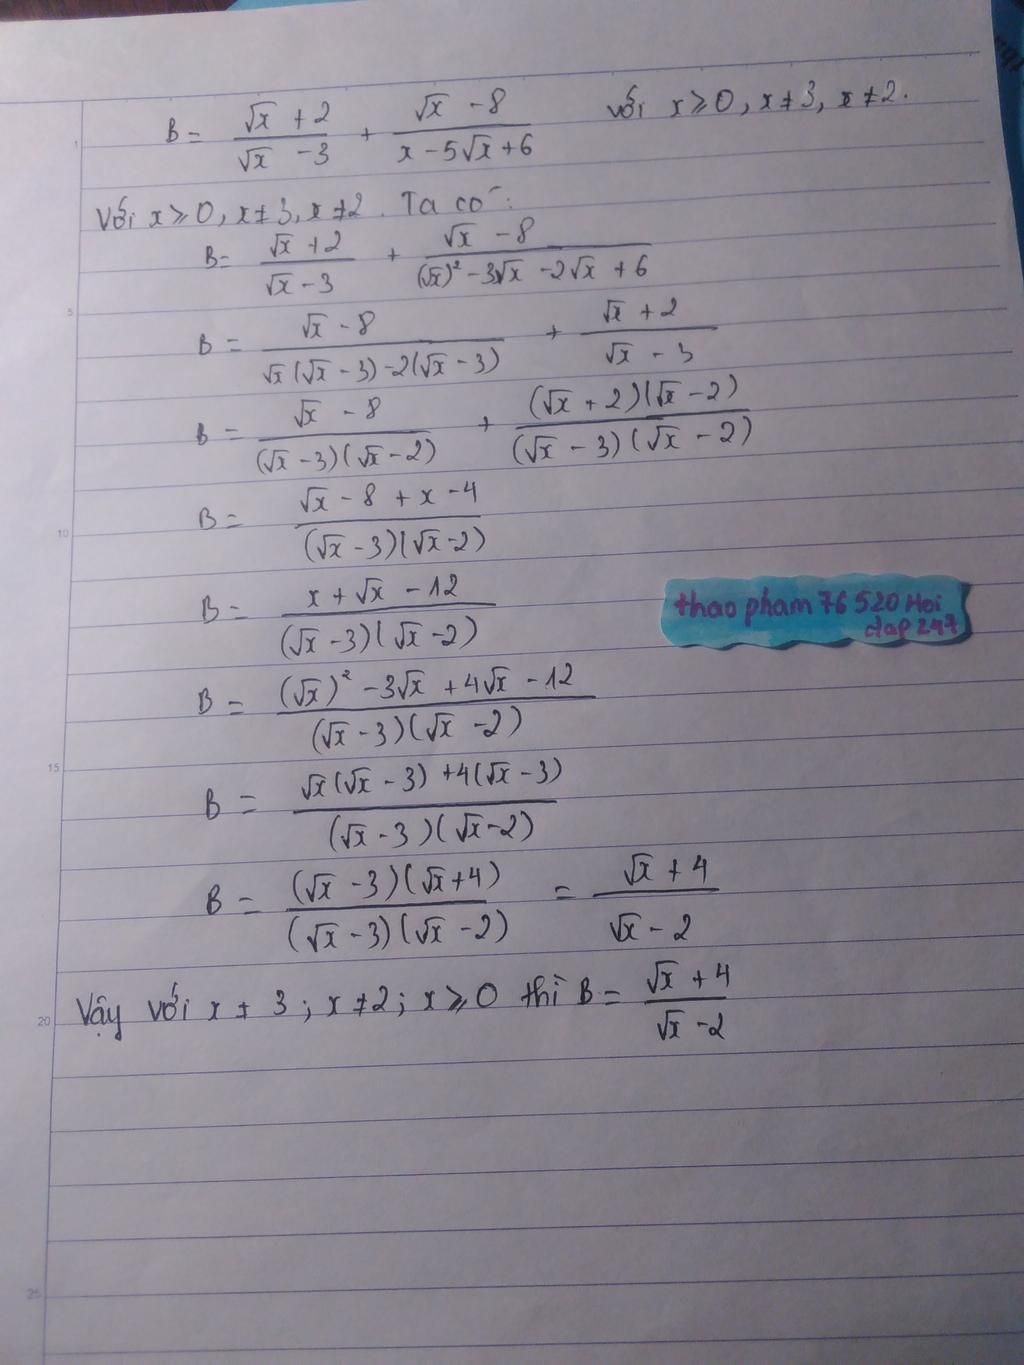 B = (√x + 2)/(√x - 3) + (√x - 8)/(x - 5√x + 6) với x ≥ 0, x ≠ 3, x ≠ 2.
Với x ≥ 0, x ≠ 3, x ≠ 2. Ta có:
B = (√x + 2)/(√x - 3) + (√x - 8)/((√x)² - 3√x - 2√x + 6)
B = (√x - 8)/(√x(√x - 3) - 2(√x - 3)) + (√x + 2)/(√x - 3)
B = (√x - 8)/((√x - 3)(√x - 2)) + ((√x + 2)(√x - 2))/((√x - 3)(√x - 2))
B = (√x - 8 + x - 4)/((√x - 3)(√x - 2))
B = (x + √x - 12)/((√x - 3)(√x - 2))
thao pham 76 520 Hoi
dap 247
B = ((√x)² - 3√x + 4√x - 12)/((√x - 3)(√x - 2))
B = (√x(√x - 3) + 4(√x - 3))/((√x - 3)(√x - 2))
B = ((√x - 3)(√x + 4))/((√x - 3)(√x - 2)) = (√x + 4)/(√x - 2)
Vậy với x ≠ 3 ; x ≠ 2 ; x ≥ 0 thì B = (√x + 4)/(√x - 2)
1
5
10
15
20
25